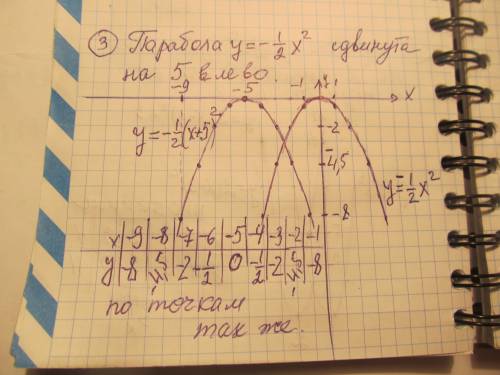 ③ Парабола y = -1/2 x² сдвинута
на 5 влево.
-9 -5 -1 y 1 x
y = -1/2 (x+5)²
-2
-4,5
y = -1/2 x²
-8
x | -9 | -8 | -7 | -6 | -5 | -4 | -3 | -2 | -1
y | -8 | -4,5 | -2 | -1/2 | 0 | -1/2 | -2 | -4,5 | -8
по точкам
так же.